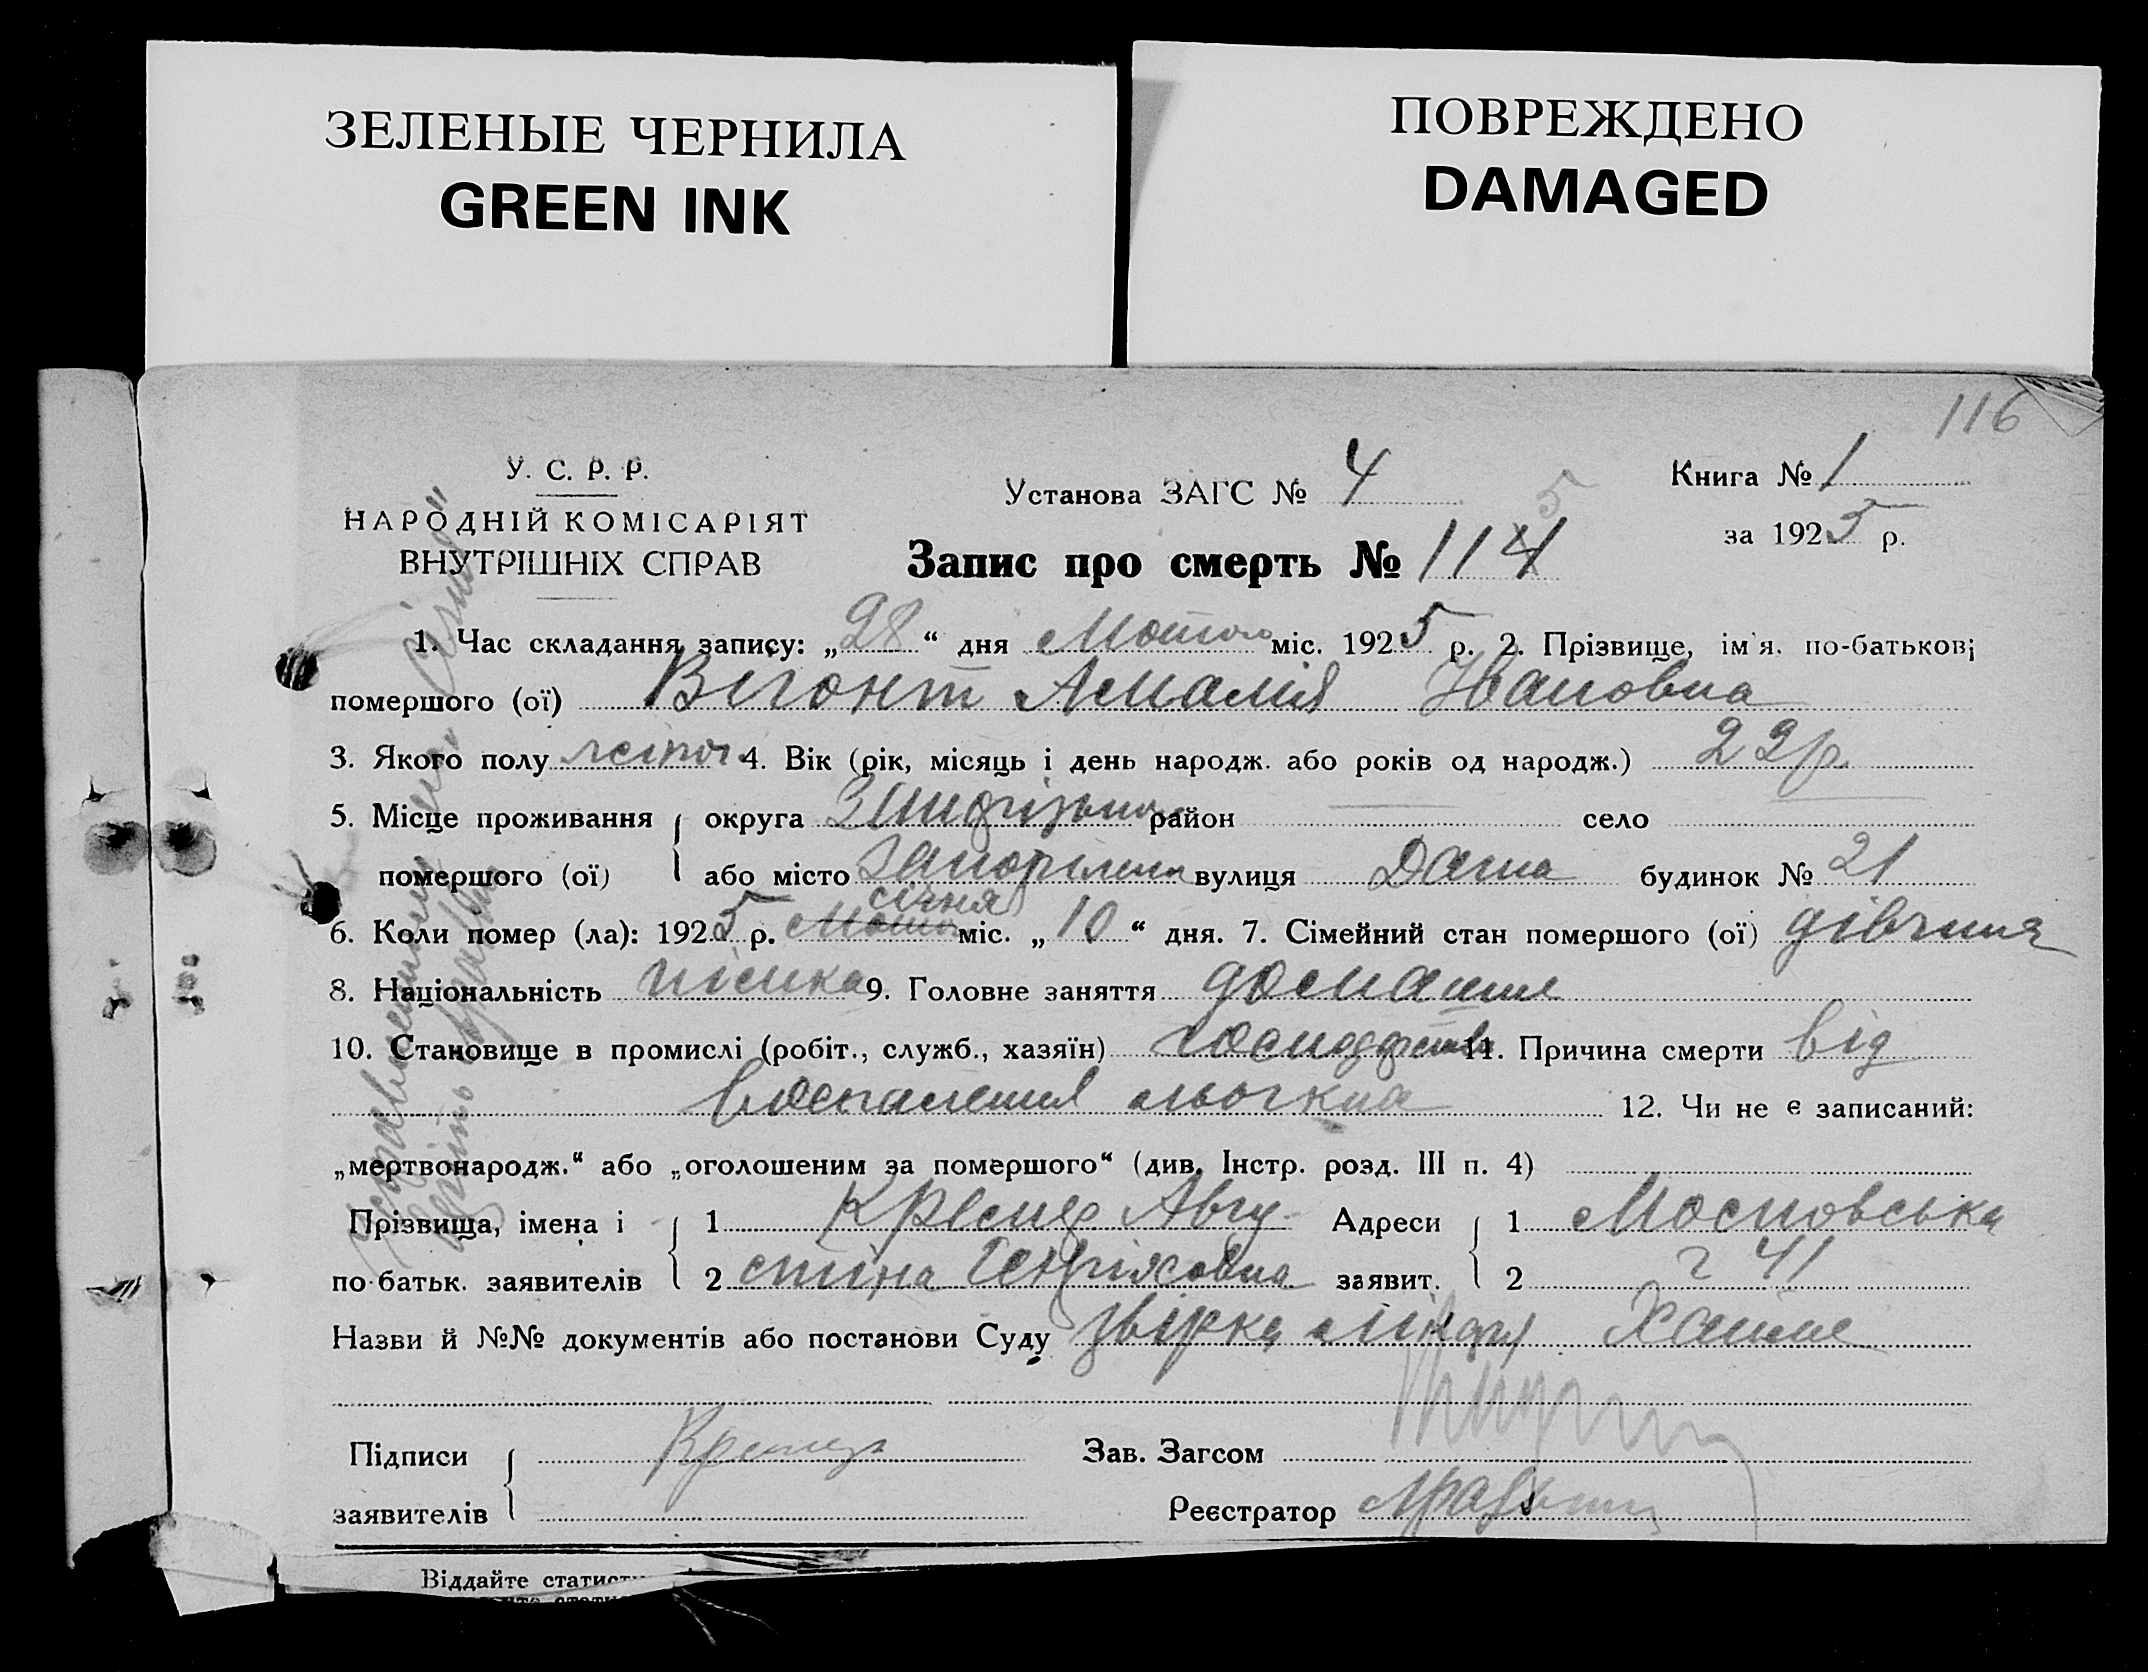 ЗЕЛЕНЫЕ ЧЕРНИЛА
GREEN INK
ПОВРЕЖДЕНО
DAMAGED
116
У. С. Р. Р.
НАРОДНІЙ КОМІСАРІЯТ
ВНУТРІШНІХ СПРАВ
Установа ЗАГС № 4
Книга № 1
за 1925 р.
5
Запис про смерть № 114
1. Час складання запису: „28“ дня Лютого міс. 1925 р. 2. Прізвище, ім'я, по-батькові
помершого (ої) Вігонт Амалія Івановна
3. Якого полу 4. Вік (рік, місяць і день народж. або років од народж.) 22 р
5. Місце проживання округа район село
помершого (ої) або місто вулиця будинок № 21
січня
6. Коли помер (ла): 1925 р. міс. „10“ дня. 7. Сімейний стан помершого (ої) дівчина
8. Національність німка 9. Головне заняття домашнє
10. Становище в промислі (робіт., служб., хазяїн) господарство 11. Причина смерти від
воспаления льогких 12. Чи не є записаний:
„мертвонародж.“ або „оголошеним за помершого“ (див. Інстр. розд. III п. 4)
Прізвища, імена і 1 Авгу- Адреси 1 Московська
по-батьк. заявителів 2 стіна Генріховна заявит. 2 41
Назви й №№ документів або постанови Суду
Підписи Зав. Загсом
заявителів Реєстратор
Віддайте статист